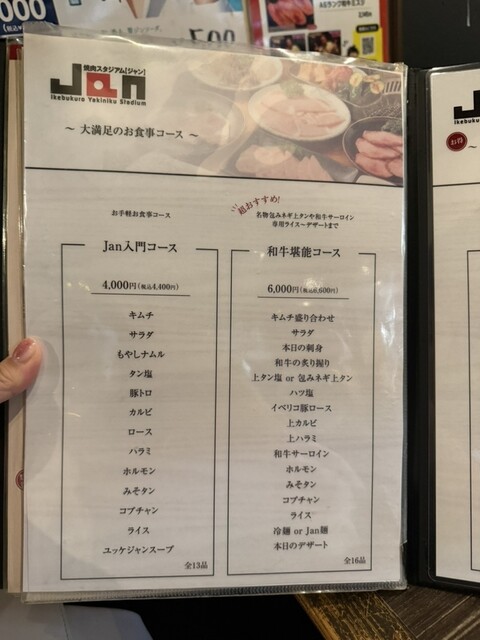 000
500
焼肉スタジアム[ジャン]
Jan
Ikebukuro Yakiniku Stadium
～ 大満足のお食事コース ～
お手軽お食事コース
Jan入門コース
4,000円(税込4,400円)
キムチ
サラダ
もやしナムル
タン塩
豚トロ
カルビ
ロース
ハラミ
ホルモン
みそタン
コプチャン
ライス
ユッケジャンスープ
全13品
超おすすめ!
名物包みネギ上タンや和牛サーロイン
専用ライス～デザートまで
和牛堪能コース
6,000円(税込6,600円)
キムチ盛り合わせ
サラダ
本日の刺身
和牛の炙り握り
上タン塩 or 包みネギ上タン
ハツ塩
イベリコ豚ロース
上カルビ
上ハラミ
和牛サーロイン
ホルモン
みそタン
コプチャン
ライス
冷麺 or Jan麺
本日のデザート
全16品
お得
～